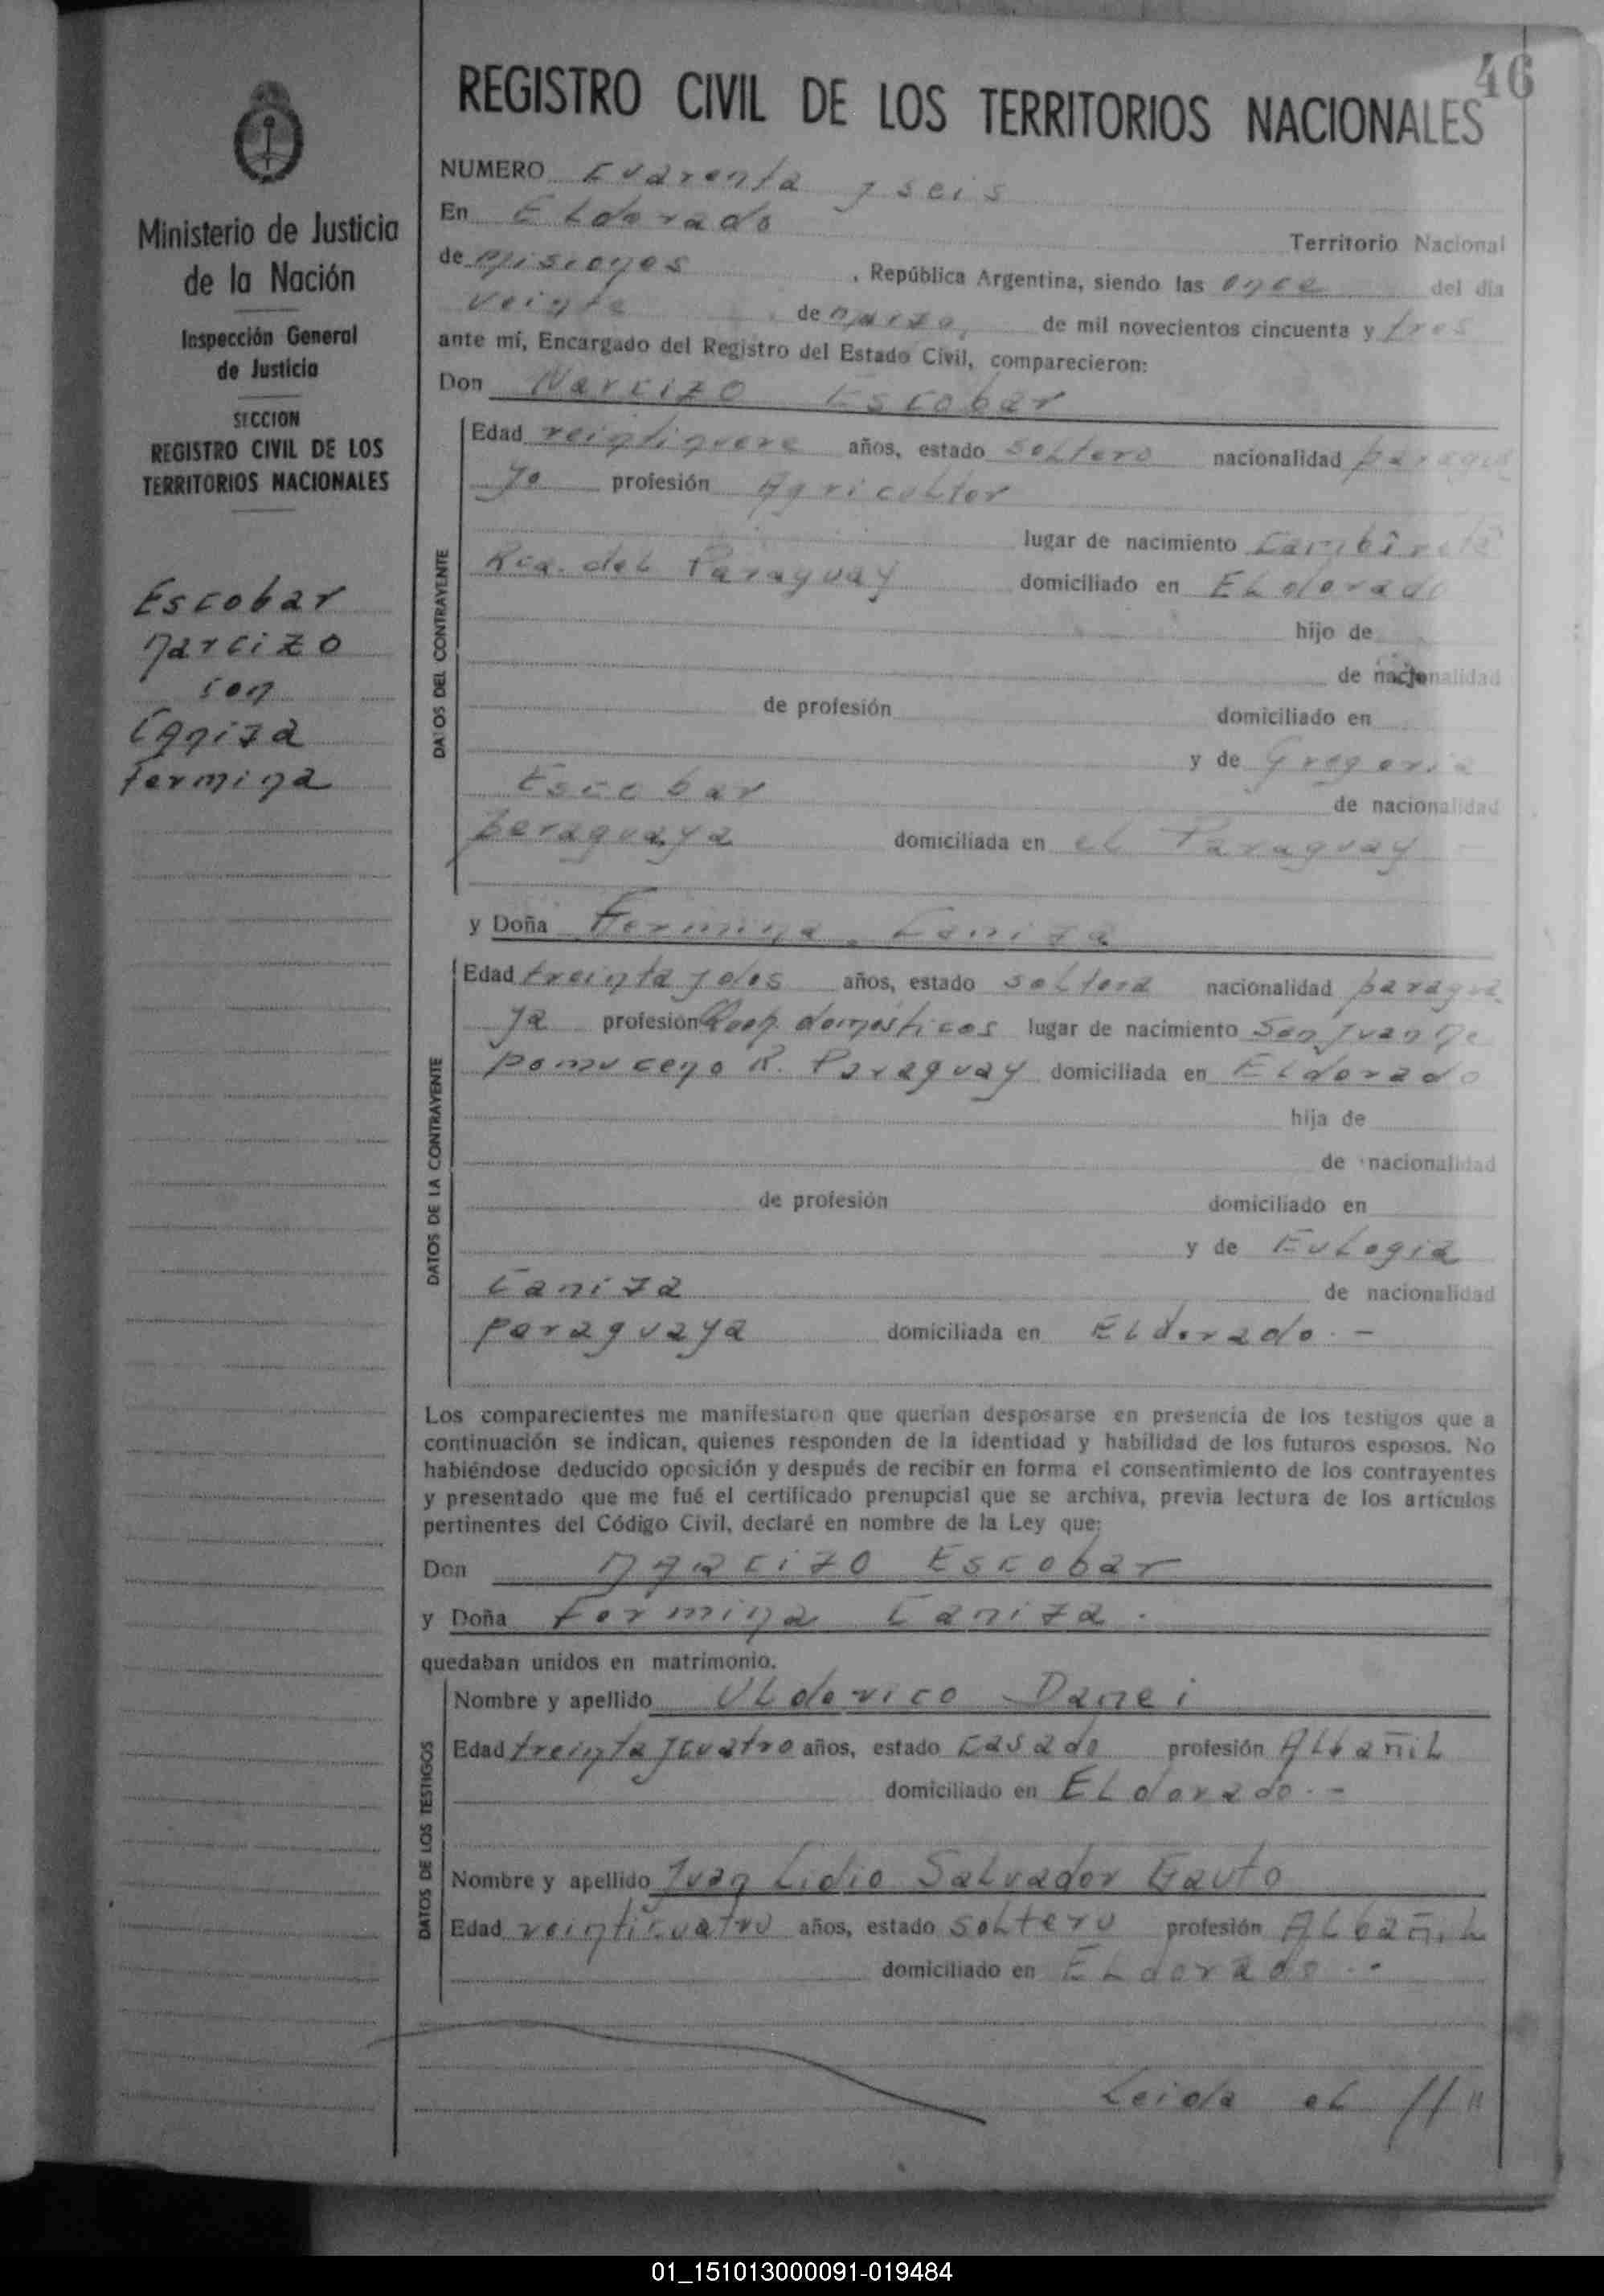 46
REGISTRO CIVIL DE LOS TERRITORIOS NACIONALES
Ministerio de Justicia
de la Nación
Inspección General
de Justicia
SECCION
REGISTRO CIVIL DE LOS
TERRITORIOS NACIONALES
Escobar
Narcizo
con
Caniza
Fermina
NUMERO Cuarenta y seis
En Eldorado Territorio Nacional
de Misiones, República Argentina, siendo las once del día
veinte de marzo, de mil novecientos cincuenta y tres
ante mí, Encargado del Registro del Estado Civil, comparecieron:
Don Narcizo Escobar
DATOS DEL CONTRAYENTE
Edad veintinueve años, estado soltero nacionalidad paragua
yo profesión Agricultor
lugar de nacimiento
Rca. del Paraguay domiciliado en Eldorado
hijo de
de nacionalidad
de profesión domiciliado en
y de Gregoria
Escobar de nacionalidad
paraguaya domiciliada en el Paraguay
y Doña Fermina Caniza
DATOS DE LA CONTRAYENTE
Edad treinta y dos años, estado soltera nacionalidad paragua
ya profesión domésticos lugar de nacimiento San Juan Ne
pomuceno R. Paraguay domiciliada en Eldorado
hija de
de nacionalidad
de profesión domiciliado en
y de Eulogia
Caniza de nacionalidad
paraguaya domiciliada en Eldorado.-
Los comparecientes me manifestaron que querían desposarse en presencia de los testigos que a
continuación se indican, quienes responden de la identidad y habilidad de los futuros esposos. No
habiéndose deducido oposición y después de recibir en forma el consentimiento de los contrayentes
y presentado que me fué el certificado prenupcial que se archiva, previa lectura de los artículos
pertinentes del Código Civil, declaré en nombre de la Ley que:
Don Narcizo Escobar
y Doña Fermina Caniza.
quedaban unidos en matrimonio.
DATOS DE LOS TESTIGOS
Nombre y apellido Uldorico Danei
Edad treinta y cuatro años, estado casado profesión Albañil
domiciliado en Eldorado.-
Nombre y apellido Juan Lidio Salvador Gauto
Edad veinticuatro años, estado soltero profesión Albañil
domiciliado en Eldorado.-
Leida el //"
01_151013000091-019484